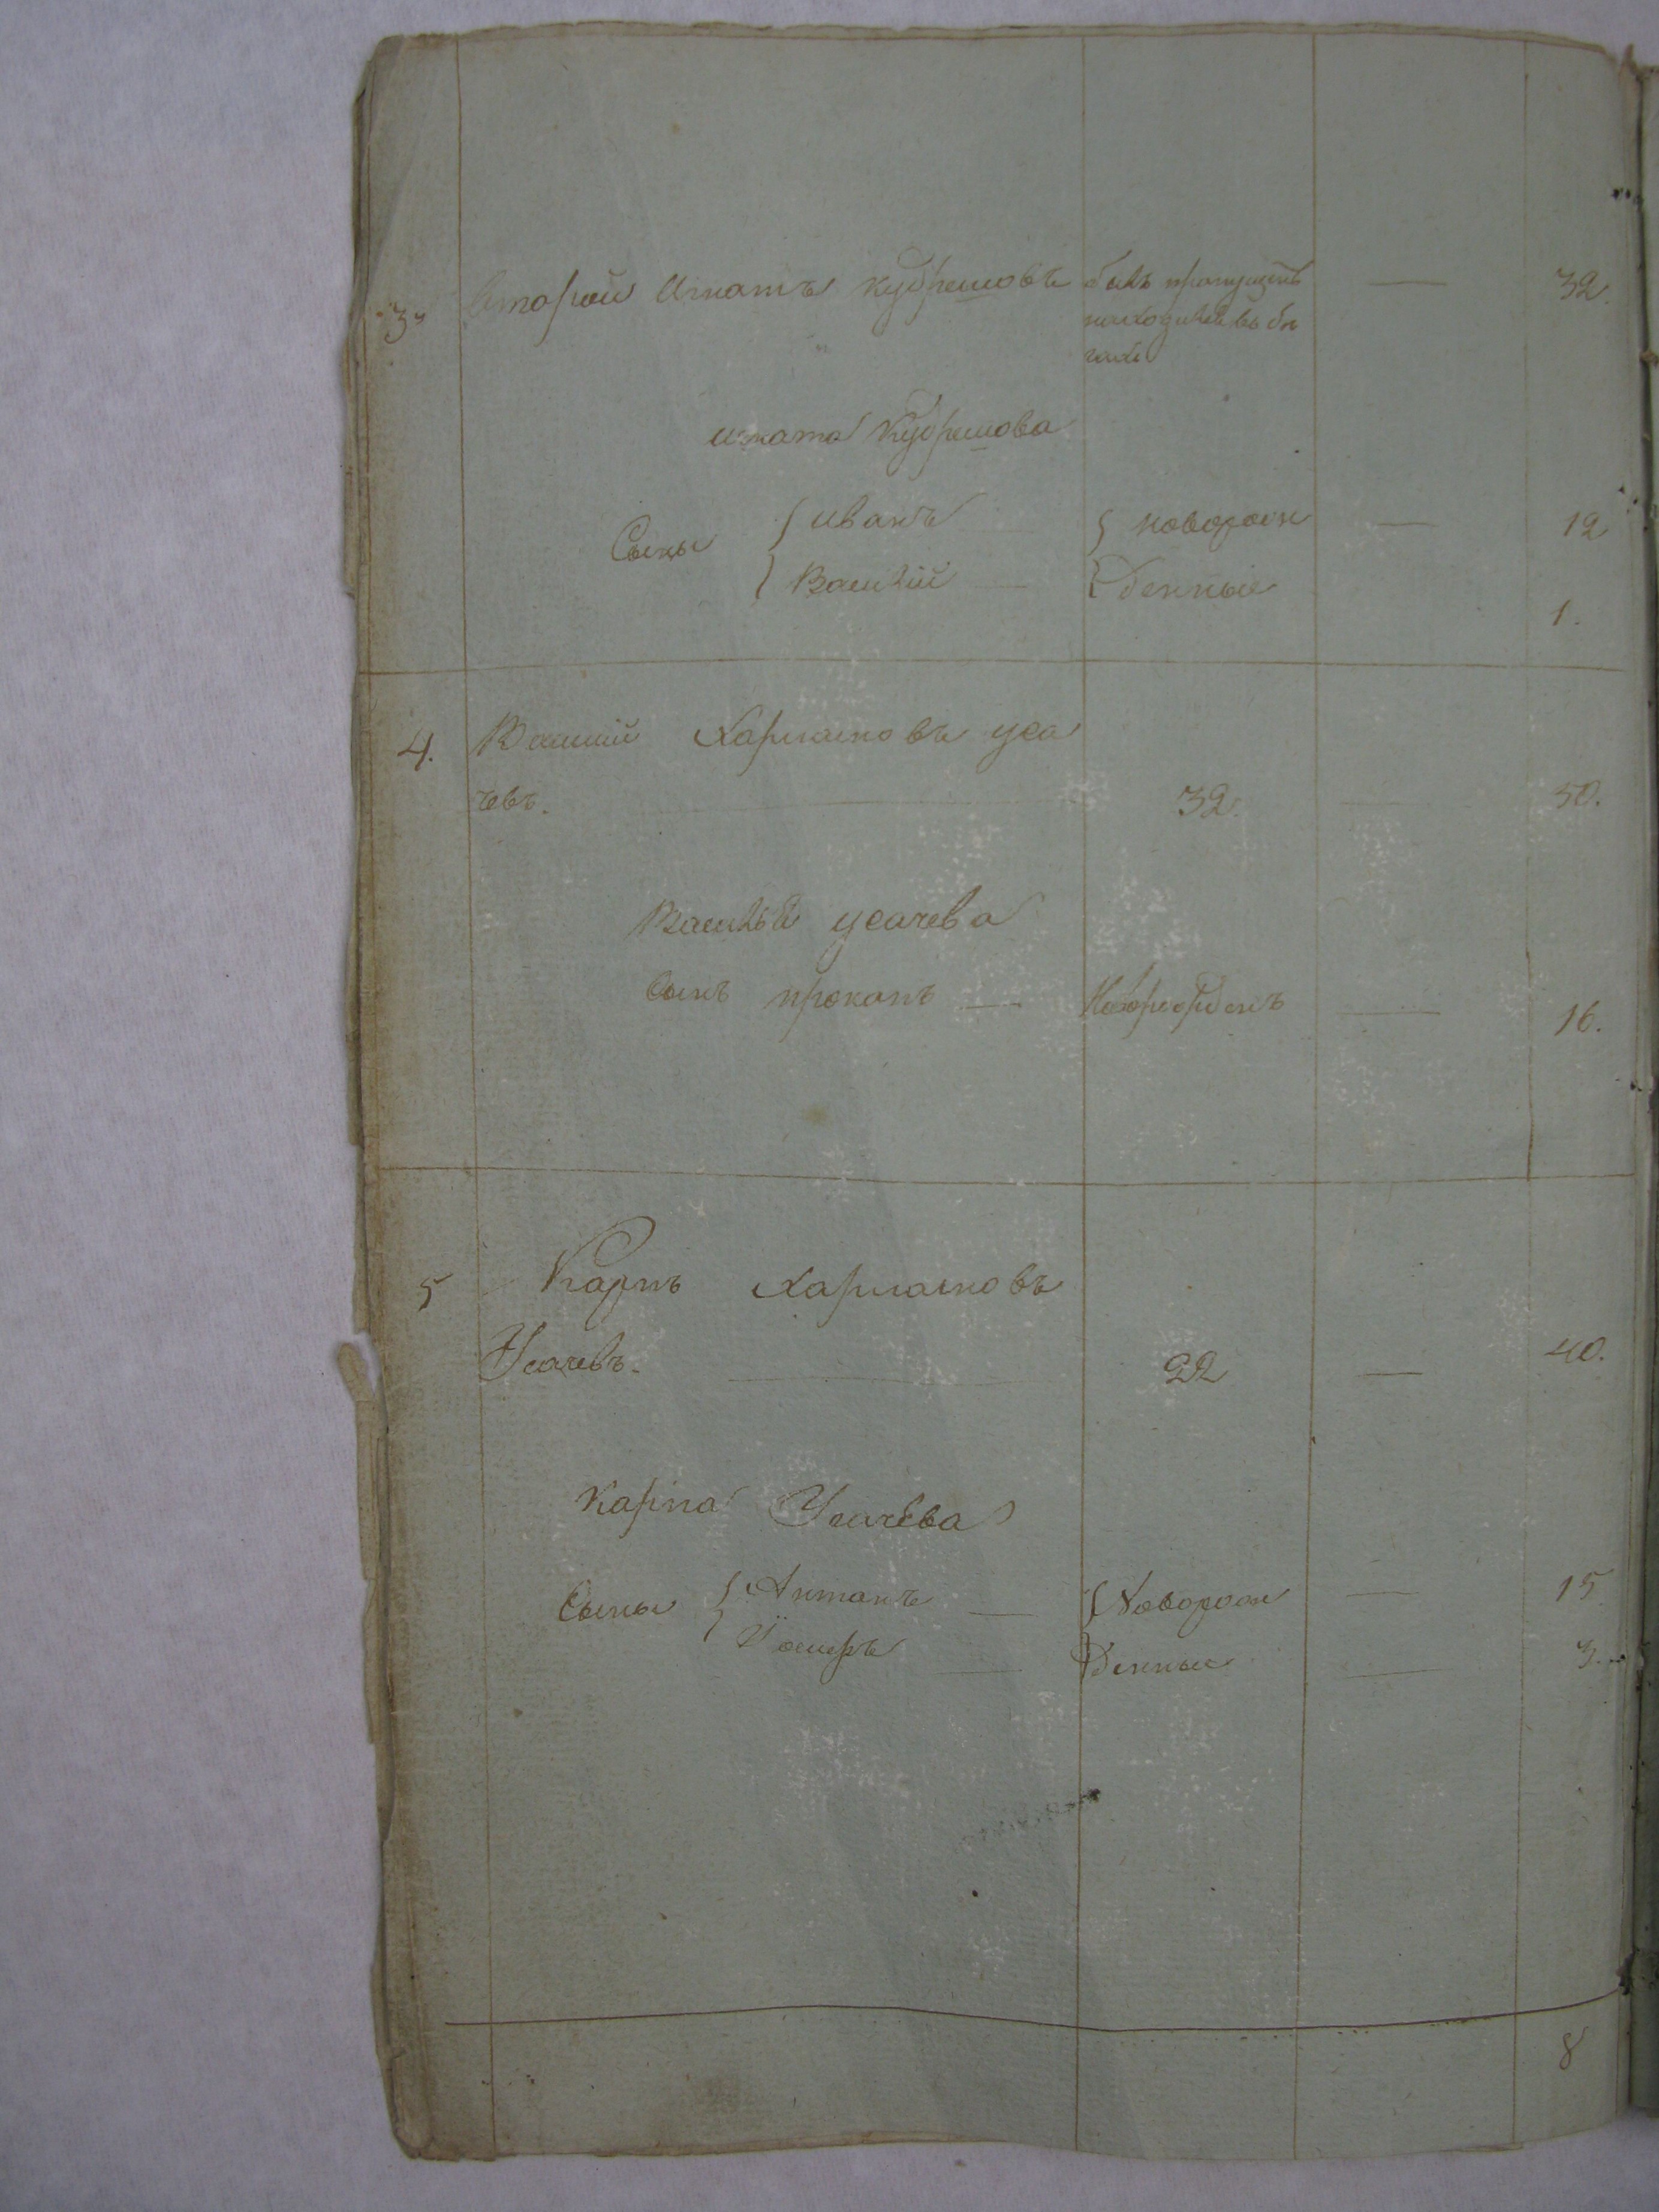 3. Вторый Игнатъ Кудряшовъ былъ пропущенъ — 32.
находился въ бѣ
гахъ
Игната Кудряшова
Сыны { Иванъ — } новорож — 12
{ Василій — } денные 1.
4. Василий Харлановъ уса
чевъ. — 32. — 50.
Василья усачева
Сынъ прокопъ — Новорожденъ — 16.
5 Карпъ Харлановъ
Усачевъ. — 22 — 40.
Карпа Усачева
Сыны { Антонъ — { Новорож — 15
{ — денные — 3.
8